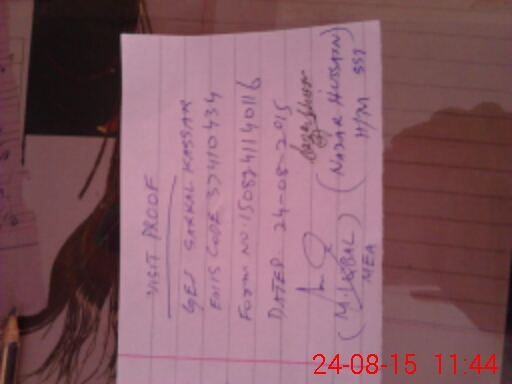 VISIT PROOF
GES SARKAL KASSAR
EMIS CODE 37410434
FORM NO 1508241140116
DATED 24-08-2015
(M. IQBAL) (NAZAR HUSSAIN)
MEA H/M SST
24-08-15 11:44